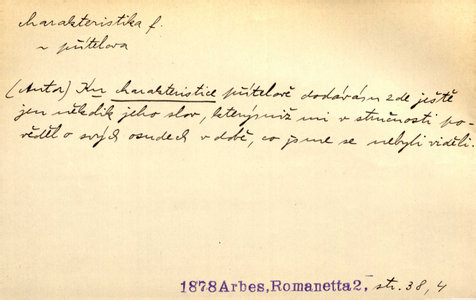 charakteristika f.
~ přítelova
(Autor) Ku charakteristice přítelově dodávám zde ještě
jen několik jeho slov, kterýmiž mi v stručnosti po-
věděl o svých osudech v době, co jsme se nebyli viděli.
1878 Arbes, Romanetta 2, str. 38, 4